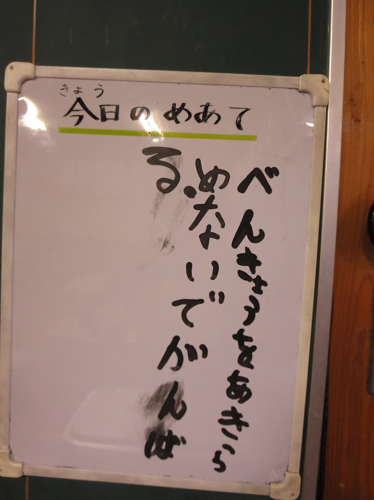 きょう
今日のめあて
べんきょうをあきら
めないでがんば
る。